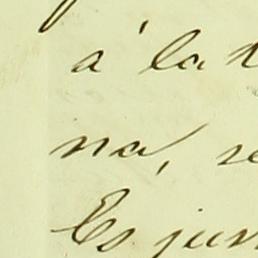 á la
na, se
Es jus